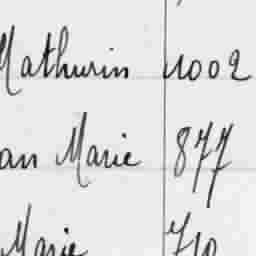 Mathurin 1002
an Marie 877
Marie 710